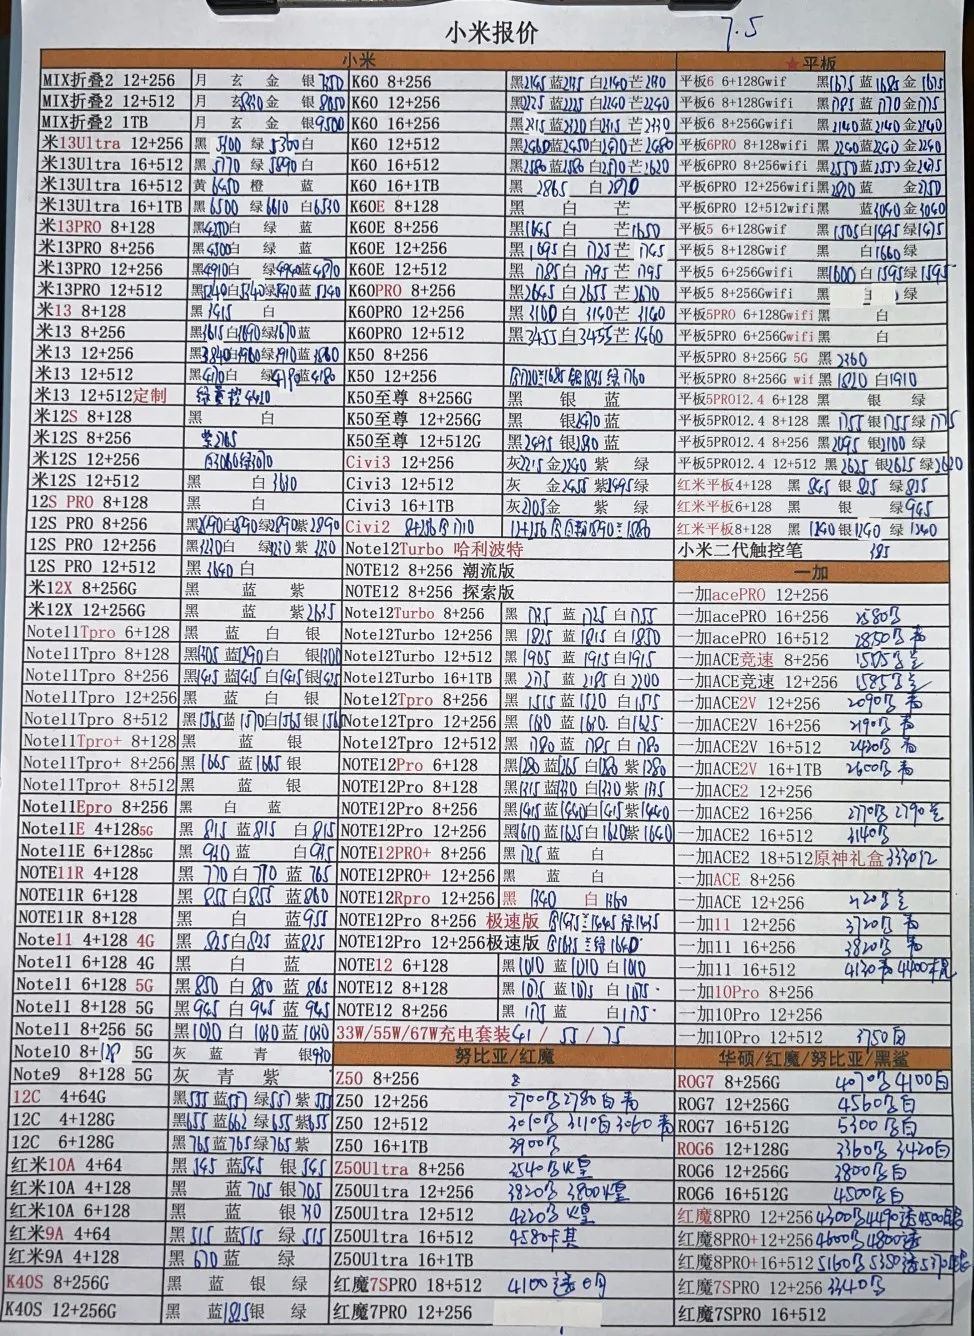 小米报价
7.5
小米
MIX折叠2 12+256 月 玄 金 银7350
MIX折叠2 12+512 月 玄8230 金 银8050
MIX折叠2 1TB 月 玄 金 银9500
米13Ultra 12+256 黑 5400 绿 5360白
米13Ultra 16+512 黑 5770 绿 5890白
米13Ultra 16+512 黄 6450 橙 蓝
米13Ultra 16+1TB 黑 6500 绿6610 白6530
米13PRO 8+128 黑4270白 绿 蓝
米13PRO 8+256 黑4500白 绿 蓝
米13PRO 12+256 黑4910白 绿4940蓝4870
米13PRO 12+512 黑5240白5240绿5290蓝5240
米13 8+128 黑3415 白
米13 8+256 黑3615白3690绿3670蓝
米13 12+256 黑3840白3900绿3910蓝3860
米13 12+512 黑4170白 绿4190蓝4180
米13 12+512定制 4420
米12S 8+128 黑 白
米12S 8+256 2765
米12S 12+256 白3060绿3070
米12S 12+512 黑 白 3630
12S PRO 8+128 黑 白
12S PRO 8+256 黑2890白2890绿2890紫2890
12S PRO 12+256 黑3230白 绿3230紫 3230
12S PRO 12+512 黑3640白
米12X 8+256G 黑 蓝 紫
米12X 12+256G 黑 蓝 紫2635
Note11Tpro 6+128 黑 蓝 白 银
Note11Tpro 8+128 黑1305蓝1290白 银1300
Note11Tpro 8+256 黑1415蓝1415白1415银1425
Note11Tpro 12+256 黑 蓝 白 银
Note11Tpro 8+512 黑1565蓝1570白1565银1565
Note11Tpro+ 8+128 黑 蓝 银
Note11Tpro+ 8+256 黑1665蓝1665银
Note11Tpro+ 8+512 黑 蓝 银
Note11Epro 8+256 黑 白 蓝
Note11E 4+1285G 黑 815蓝815 白815
Note11E 6+1285G 黑 940蓝 白945
NOTE11R 4+128 黑 770白770 蓝765
NOTE11R 6+128 黑 855白855 蓝860
NOTE11R 8+128 黑 白 蓝955
Note11 4+128 4G 黑 825白825 蓝825
Note11 6+128 4G 黑 白 蓝
Note11 6+128 5G 黑 850白 850蓝865
Note11 8+128 5G 黑 945白 945蓝945
Note11 8+256 5G 黑1020白 1030蓝1030
Note10 8+128 5G 灰 蓝 青 银930
Note9 8+128 5G 灰 青 紫
12C 4+64G 黑555蓝557绿557紫555
12C 4+128G 黑655蓝662绿655紫655
12C 6+128G 黑765蓝765绿765紫
红米10A 4+64 黑 545蓝545 银545
红米10A 4+128 黑 蓝705银705
红米10A 6+128 黑 蓝 银730
红米9A 4+64 黑515蓝515 绿515
红米9A 4+128 黑 670蓝 绿
K40S 8+256G 黑 蓝 银 绿
K40S 12+256G 黑 蓝1825银 绿
K60 8+256 黑2145蓝2145白2140芒2130
K60 12+256 黑2225蓝2225白2240芒2240
K60 16+256 黑2315蓝2320白2315芒2330
K60 12+512 黑2460蓝2450白2470芒2480
K60 16+512 黑2580蓝2580白2570芒2620
K60 16+1TB 黑 2865 白2870
K60E 8+128 黑 白 芒
K60E 8+256 黑1645 白 芒1650
K60E 12+256 黑1695白1725芒1745
K60E 12+512 黑1785白1795芒1795
K60PRO 8+256 黑2645白2655芒2670
K60PRO 12+256 黑3100白3140芒3140
K60PRO 12+512 黑3455白3455芒3460
K50 8+256
K50 12+256 1720 1685银1845绿1760
K50至尊 8+256G 黑 银 蓝
K50至尊 12+256G 黑 银2470蓝
K50至尊 12+512G 黑2495银2580蓝
Civi3 12+256 灰2215金2240紫 绿
Civi3 12+512 灰 金2455紫2495绿
Civi3 16+1TB 灰2705金 紫 绿
Civi2 8+256 1710 12+256 1890 1880
Note12Turbo 哈利波特
NOTE12 8+256 潮流版
NOTE12 8+256 探索版
Note12Turbo 8+256 黑 1735 蓝 1725白1755
Note12Turbo 12+256 黑 1825 蓝 1815白1850
Note12Turbo 12+512 黑 1905 蓝 1915白1915
Note12Turbo 16+1TB 黑 2175 蓝 2185白2200
Note12Tpro 8+256 黑 1515 蓝 1520白1575
Note12Tpro 12+256 黑 1610 蓝 1610白1625
Note12Tpro 12+512 黑 1780 蓝 1785白1780
NOTE12Pro 6+128 黑1280蓝1265白1280紫1280
NOTE12Pro 8+128 黑1315蓝1330白1330紫1335
NOTE12Pro 8+256 黑1415蓝1440白1415紫1440
NOTE12Pro 12+256 黑1610蓝1625白1620紫1640
NOTE12PRO+ 8+256 黑1725蓝 白
NOTE12PRO+ 12+256 黑 蓝 白
NOTE12Rpro 12+256 黑 1340 白 1360
NOTE12Pro 8+256 极速版 1435 1445绿1435
NOTE12Pro 12+256极速版 1635 绿1640
NOTE12 6+128 黑1010蓝1010白1010
NOTE12 8+128 黑1075蓝1075白1075
NOTE12 8+256 黑1175蓝 白1175
33W/55W/67W充电套装41 / 55 / 75
努比亚/红魔
Z50 8+256
Z50 12+256 2700 2780白
Z50 12+512 3010 3110白3060
Z50 16+1TB 3900
Z50Ultra 8+256 3540
Z50Ultra 12+256 3820 3800
Z50Ultra 12+512 4220
Z50Ultra 16+512 4580
Z50Ultra 16+1TB
红魔7SPRO 18+512 4100透
红魔7PRO 12+256
★平板
平板6 6+128Gwif 黑1675蓝1685金1675
平板6 8+128Gwif 黑1785蓝1770金1775
平板6 8+256Gwif 黑2140蓝2140金2140
平板6PRO 8+128wif 黑2240蓝2240金2240
平板6PRO 8+256wif 黑2550蓝2550金2495
平板6PRO 12+256wif黑2820蓝 金2750
平板6PRO 12+512wif黑 蓝3040金3040
平板5 6+128Gwif 黑1505白1495绿1475
平板5 8+128Gwif 黑 白1660绿
平板5 6+256Gwifi 黑1600白1595绿1595
平板5 8+256Gwifi 黑 白 绿
平板5PRO 6+128Gwifi黑 白
平板5PRO 6+256Gwifi黑 白
平板5PRO 8+256G 5G 黑 2360
平板5PRO 8+256G wif 黑1820白1910
平板5PRO12.4 6+128 黑 银 绿
平板5PRO12.4 8+128 黑1755银1755绿1775
平板5PRO12.4 8+256 黑2095银2100绿
平板5PRO12.4 12+512 黑2625银2625绿2620
红米平板4+128 黑 845银 825绿815
红米平板6+128 黑 银 绿945
红米平板8+128 黑 1240银1240绿1240
小米二代触控笔 385
一加
一加acePRO 12+256
一加acePRO 16+256 2580
一加acePRO 16+512 2850
一加ACE竞速 8+256 1505
一加ACE竞速 12+256 1585
一加ACE2V 12+256 2090
一加ACE2V 16+256 2190
一加ACE2V 16+512 2420
一加ACE2V 16+1TB 2600
一加ACE2 12+256
一加ACE2 16+256 2770 2790
一加ACE2 16+512 3140
一加ACE2 18+512原神礼盒3330
一加ACE 8+256
一加ACE 12+256
一加11 12+256 3720
一加11 16+256 3820
一加11 16+512 4130 4400
一加10Pro 8+256
一加10Pro 12+256
一加10Pro 12+512 3750
华硕/红魔/努比亚/黑鲨
ROG7 8+256G 4070 4100白
ROG7 12+256G 4560 白
ROG7 16+512G 5300 白
ROG6 12+128G 3360 3420白
ROG6 12+256G 3800 白
ROG6 16+512G 4500 白
红魔8PRO 12+256 4300 4490透4500
红魔8PRO+12+256 4600 4800透
红魔8PRO+16+512 5160 5350透5370
红魔7SPRO 12+256 3340
红魔7SPRO 16+512